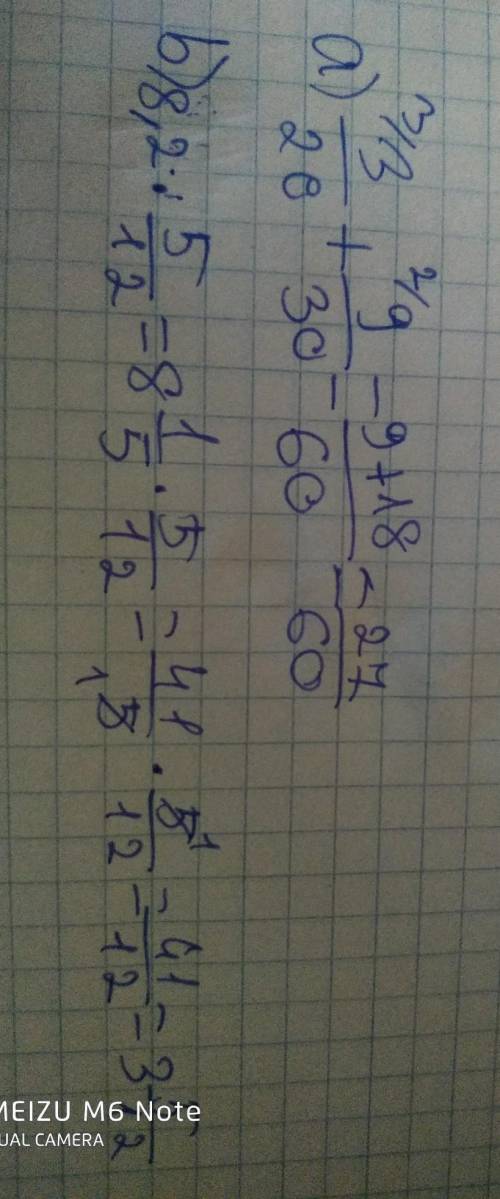 a) ³⁄3/20 + ²⁄9/30 = 9+18/60 = 27/60
b) 8,2 · 5/12 = 8 1/5 · 5/12 = 41/5 · 5/12 = 41/12 = 3 5/12
MEIZU M6 Note
UAL CAMERA